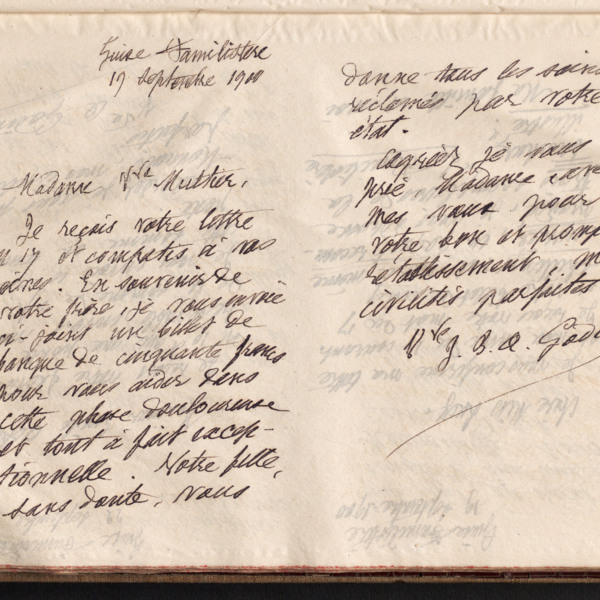 Guise Familistère
19 Septembre 1900
Madame Vve Muther,
Je reçois votre lettre
du 17 et compatis à vos
peines. En souvenir de
votre frère, je vous envoie
ci-joint un billet de
banque de cinquante francs
pour vous aider dans
cette phase douloureuse
et tout à fait excep-
tionnelle. Votre fille,
sans doute, vous
donne tous les soins
réclamés par votre
état.
Agréez je vous
prie, Madame, avec
mes vœux pour
votre bon et prompt
rétablissement, m
civilités parfaites
Vve J. B. A. Godi